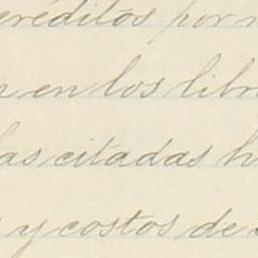 créditos por
en los libr
las citadas h
y costos de